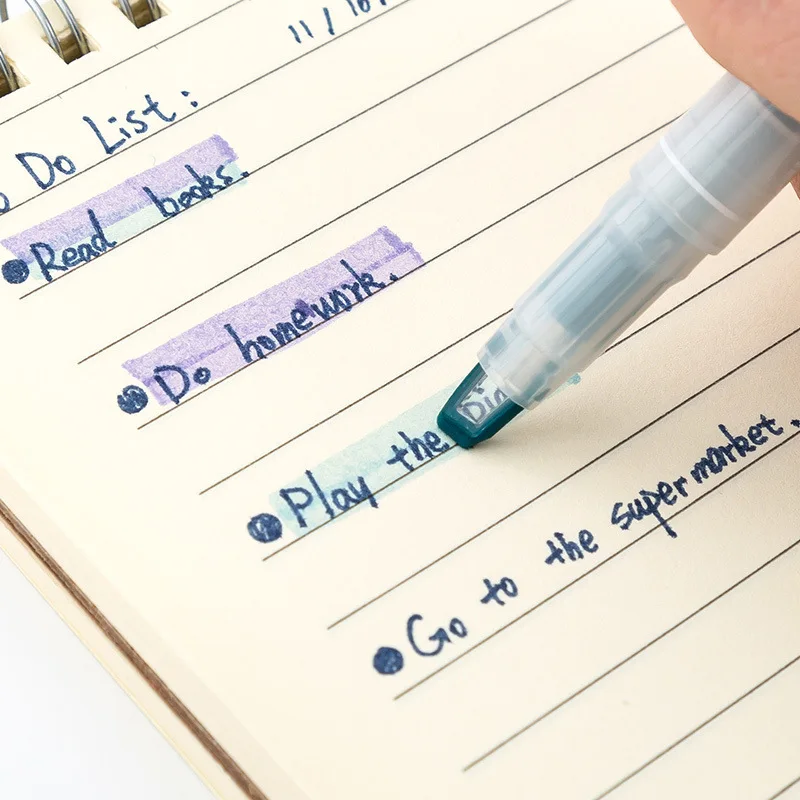 11/10
o Do List:
● Read books.
● Do homework.
● Play the
● Go to the supermarket.